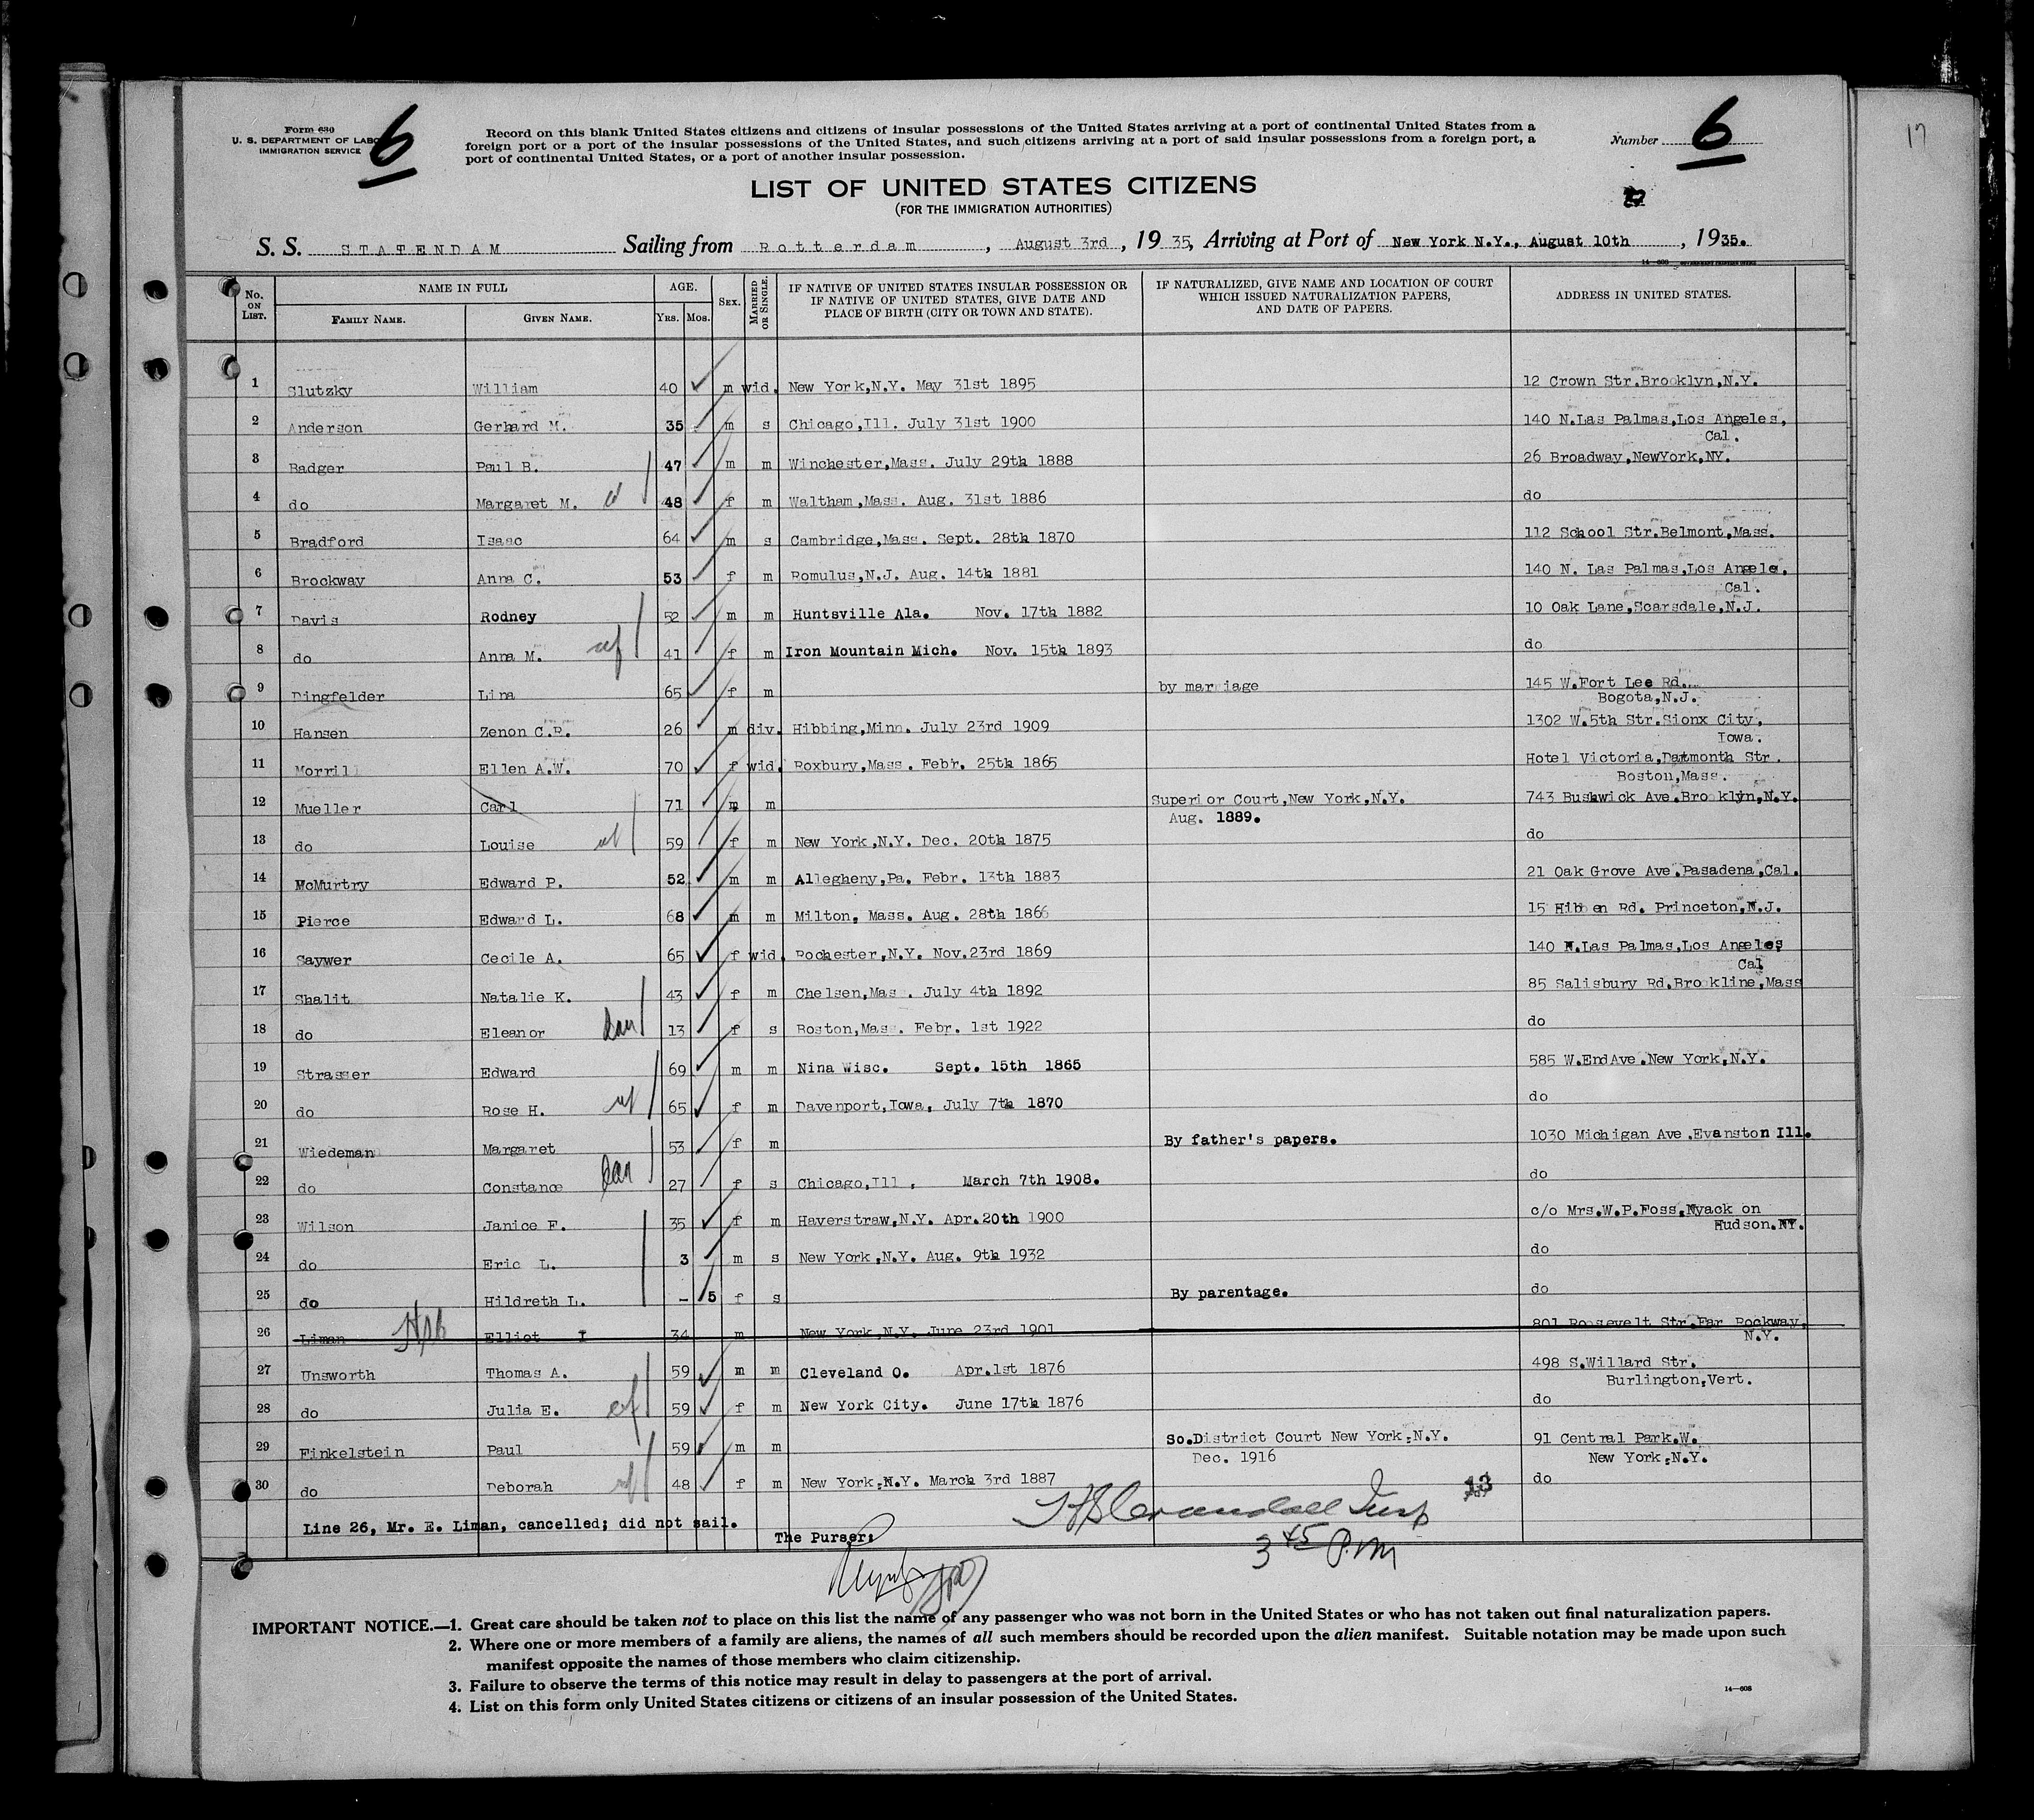 6
Form 630
U. S. DEPARTMENT OF LABOR
IMMIGRATION SERVICE
Record on this blank United States citizens and citizens of insular possessions of the United States arriving at a port of continental United States from a
foreign port or a port of the insular possessions of the United States, and such citizens arriving at a port of said insular possessions from a foreign port, a
port of continental United States, or a port of another insular possession.
Number 6
17
LIST OF UNITED STATES CITIZENS
(FOR THE IMMIGRATION AUTHORITIES)
S. S. STATENDAM Sailing from Rotterdam, August 3rd, 1935, Arriving at Port of New York N.Y., August 10th, 1935.
No. ON LIST. NAME IN FULL FAMILY NAME. GIVEN NAME. AGE. YRS. MOS. SEX. MARRIED OR SINGLE. IF NATIVE OF UNITED STATES INSULAR POSSESSION OR IF NATIVE OF UNITED STATES, GIVE DATE AND PLACE OF BIRTH (CITY OR TOWN AND STATE). IF NATURALIZED, GIVE NAME AND LOCATION OF COURT WHICH ISSUED NATURALIZATION PAPERS, AND DATE OF PAPERS. ADDRESS IN UNITED STATES.
1 Slutzky William 40 m wid. New York,N.Y. May 31st 1895 12 Crown Str.Brooklyn,N.Y.
2 Anderson Gerhard M. 35 m s Chicago,Ill. July 31st 1900 140 N.Las Palmas,Los Angeles,
Cal.
3 Badger Paul B. 47 m m Winchester,Mass. July 29th 1888 26 Broadway,NewYork,NY.
4 do Margaret M. 48 f m Waltham,Mass. Aug. 31st 1886 do
5 Bradford Isaac 64 m s Cambridge,Mass. Sept. 28th 1870 112 School Str.Belmont,Mass.
6 Brockway Anna C. 53 f m Romulus,N.J. Aug. 14th 1881 140 N. Las Palmas,Los Angele,
Cal.
7 Davis Rodney 52 m m Huntsville Ala. Nov. 17th 1882 10 Oak Lane,Scarsdale,N.J.
8 do Anna M. wf 41 f m Iron Mountain Mich. Nov. 15th 1893 do
9 Dingfelder Lina 65 f m by marriage 145 W.Fort Lee Rd.
Bogota,N.J.
10 Hansen Zenon C.R. 26 m div. Hibbing,Minn. July 23rd 1909 1302 W.5th Str.Sionx City,
Iowa.
11 Morrill Ellen A.W. 70 f wid. Roxbury,Mass. Febr. 25th 1865 Hotel Victoria,Datmonth Str.
Boston,Mass.
12 Mueller Carl 71 m m Superior Court,New York,N.Y. 743 Bushwick Ave.Brooklyn,N.Y.
Aug. 1889.
13 do Louise wf 59 f m New York,N.Y. Dec. 20th 1875 do
14 McMurtry Edward P. 52 m m Allegheny,Pa. Febr. 13th 1883 21 Oak Grove Ave.Pasadena,Cal.
15 Pierce Edward L. 68 m m Milton, Mass. Aug. 28th 1866 15 Hibben Rd. Princeton,N.J.
16 Saywer Cecile A. 65 f wid. Rochester,N.Y. Nov.23rd 1869 140 N.Las Palmas,Los Angeles
Cal
17 Shalit Natalie K. 43 f m Chelsen,Mass. July 4th 1892 85 Salisbury Rd.Brookline,Mass
18 do Eleanor dau 13 f s Boston,Mass. Febr. 1st 1922 do
19 Strasser Edward 69 m m Nina Wisc. Sept. 15th 1865 585 W.EndAve.New York,N.Y.
20 do Rose H. wf 65 f m Davenport,Iowa, July 7th 1870 do
21 Wiedeman Margaret 53 f m By father's papers. 1030 Michigan Ave.Evanston Ill.
22 do Constance dau 27 f s Chicago,Ill, March 7th 1908. do
23 Wilson Janice F. 35 f m Haverstraw,N.Y. Apr.20th 1900 c/o Mrs.W.P.Foss,Nyack on
Hudson.NY.
24 do Eric L. 3 m s New York,N.Y. Aug. 9th 1932 do
25 do Hildreth L. – 5 f s By parentage. do
26 Liman Elliot I 34 m New York,N.Y. June 23rd 1901 801 Roosevelt Str.Far Rockway,
N.Y.
27 Unsworth Thomas A. 59 m m Cleveland O. Apr.1st 1876 498 S.Willard Str.
Burlington,Vert.
28 do Julia E. wf 59 f m New York City. June 17th 1876 do
29 Finkelstein Paul 59 m m So.District Court New York,N.Y. 91 Central Park.W.
Dec. 1916 New York,N.Y.
30 do Deborah wf 48 f m New York,N.Y. March 3rd 1887 do
13
Line 26, Mr. E. Liman, cancelled; did not sail.
The Purser:
HS Crandall Insp
3 45 P.M
IMPORTANT NOTICE.—1. Great care should be taken not to place on this list the name of any passenger who was not born in the United States or who has not taken out final naturalization papers.
2. Where one or more members of a family are aliens, the names of all such members should be recorded upon the alien manifest. Suitable notation may be made upon such
manifest opposite the names of those members who claim citizenship.
3. Failure to observe the terms of this notice may result in delay to passengers at the port of arrival.
4. List on this form only United States citizens or citizens of an insular possession of the United States.
14—608